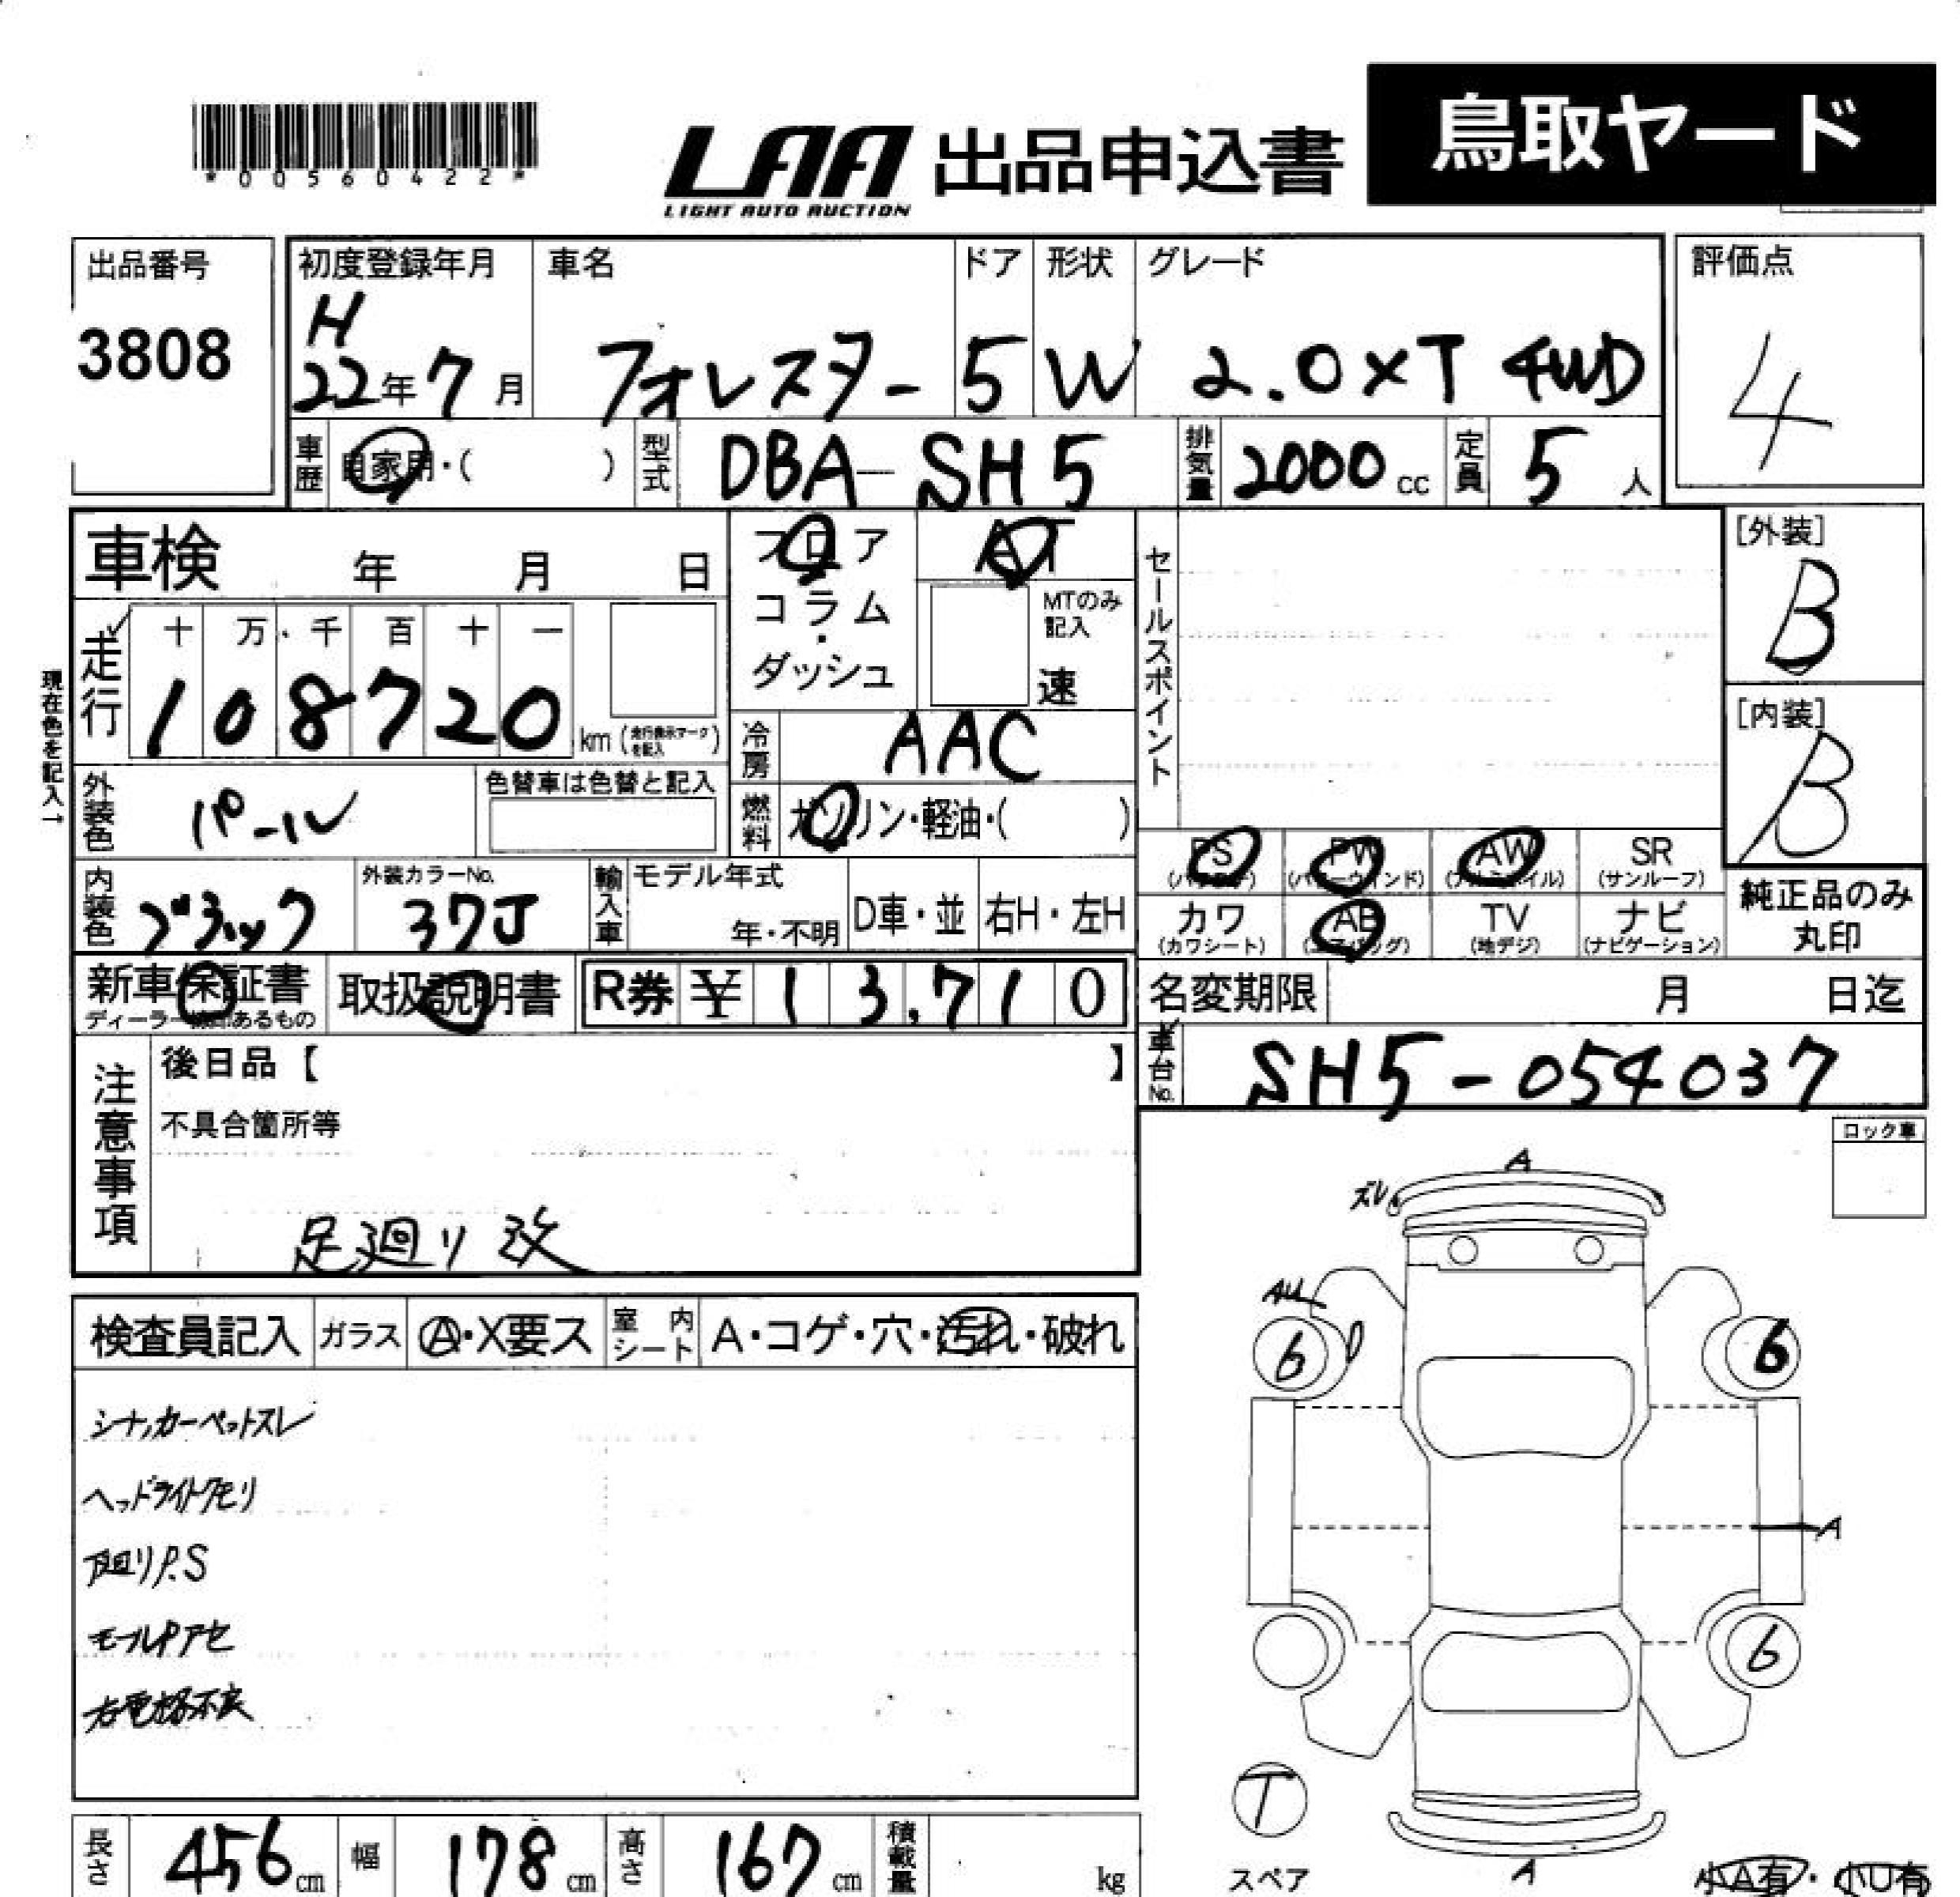 *00560422*
LAA 出品申込書 鳥取ヤード
LIGHT AUTO AUCTION
出品番号 初度登録年月 車名 ドア 形状 グレード 評価点
3808 H 22年7月 フォレスター 5 W 2.0XT 4WD 4
車歴 自家用・( ) 型式 DBA-SH5 排気量 2000 cc 定員 5 人
車検 年 月 日 フロア AT セールスポイント [外装]
B
コラム・ダッシュ MTのみ記入 速
走行 十 万、千 百 十 一
108720 km (走行表示マークを記入)
[内装]
B
現在色を記入→
冷房 AAC
外装色 パール 色替車は色替と記入 燃料 ガソリン・軽油・( )
PS (パワステ) PW (パワーウィンド) AW (アルミホイル) SR (サンルーフ)
内装色 ブラック 外装カラーNo. 37J 輸入車 モデル年式 年・不明 D車・並 右H・左H
カワ (カワシート) AB (エアバッグ) TV (地デジ) ナビ (ナビゲーション) 純正品のみ丸印
新車保証書 取扱説明書 R券 ¥13,710 名変期限 月 日迄
車台No. SH5-054037
注意事項 後日品【 】
不具合箇所等
足廻り改
ロック車
検査員記入 ガラス A・X要ス 室内シート A・コゲ・穴・汚れ・破れ
シナノカーペットスレ
ヘッドライトクモリ
下廻りP.S
モールPアセ
A
ズレ
6 6
A
6
T
スペア
A
小A有・小U有
長さ 456 cm 幅 178 cm 高さ 167 cm 積載量 kg